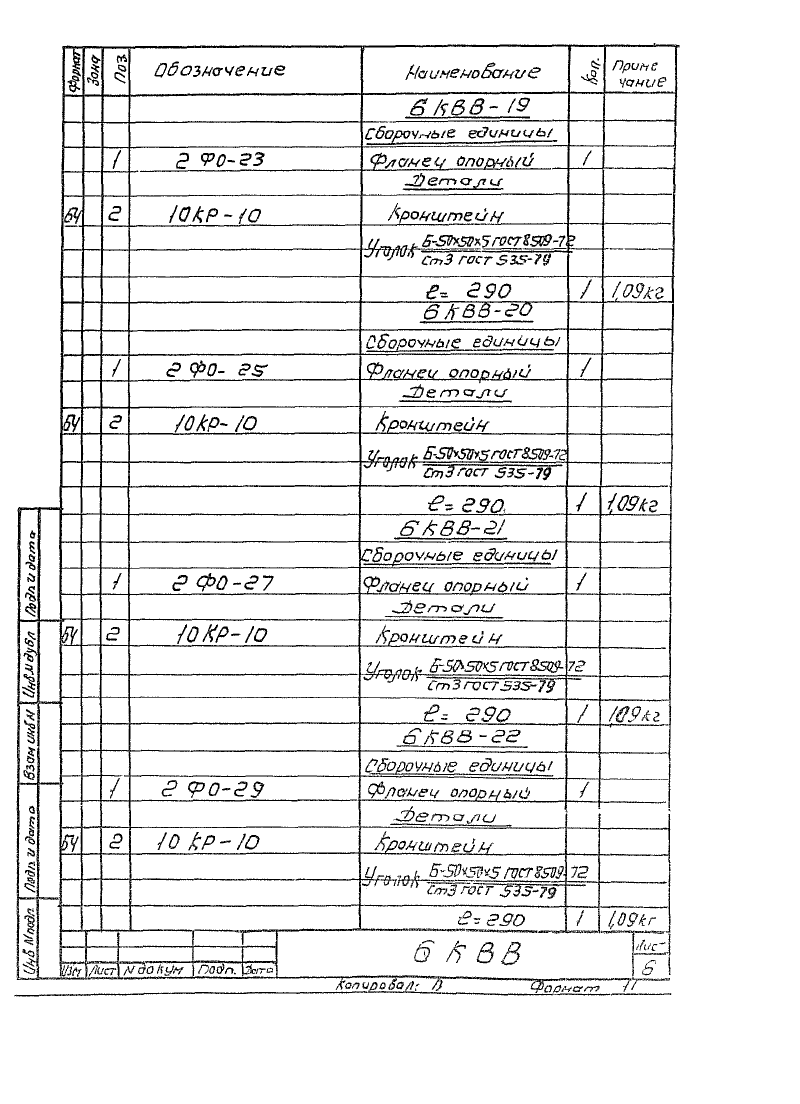 Формат Зона Поз. Обозначение Наименование Кол. Приме
чание
6 КВВ-19
Сборочные единицы
1 2 ФО-23 Фланец опорный 1
Детали
БЧ 2 10КР-10 Кронштейн
Уголок Б-50х50х5 гост 8509-72
Ст3 гост 535-79
ℓ= 290 1 1,09кг
6 КВВ-20
Сборочные единицы
1 2 ФО- 25 Фланец опорный 1
Детали
БЧ 2 10КР-10 Кронштейн
Уголок Б-50х50х5 гост 8509-72
Ст3 гост 535-79
ℓ= 290. 1 1,09кг
6 КВВ-21
Сборочные единицы
1 2 ФО-27 Фланец опорный 1
Детали
БЧ 2 10КР-10 Кронштейн
Уголок Б-50х50х5 гост 8509-72
Ст3 гост 535-79
ℓ= 290 1 1,09кг
6 КВВ-22
Сборочные единицы
1 2 ФО-29 Фланец опорный 1
Детали
БЧ 2 10 КР-10 Кронштейн
Уголок Б-50х50х5 гост 8509-72
Ст3 гост 535-79
ℓ=290 1 1,09кг
Подп. и дата
Инв.N дубл
Взам инв N
Подп. и дата
Инв N подл
Изм Лист N докум Подп. Дата
6 КВВ
Лист
6
Копировал: Формат 11